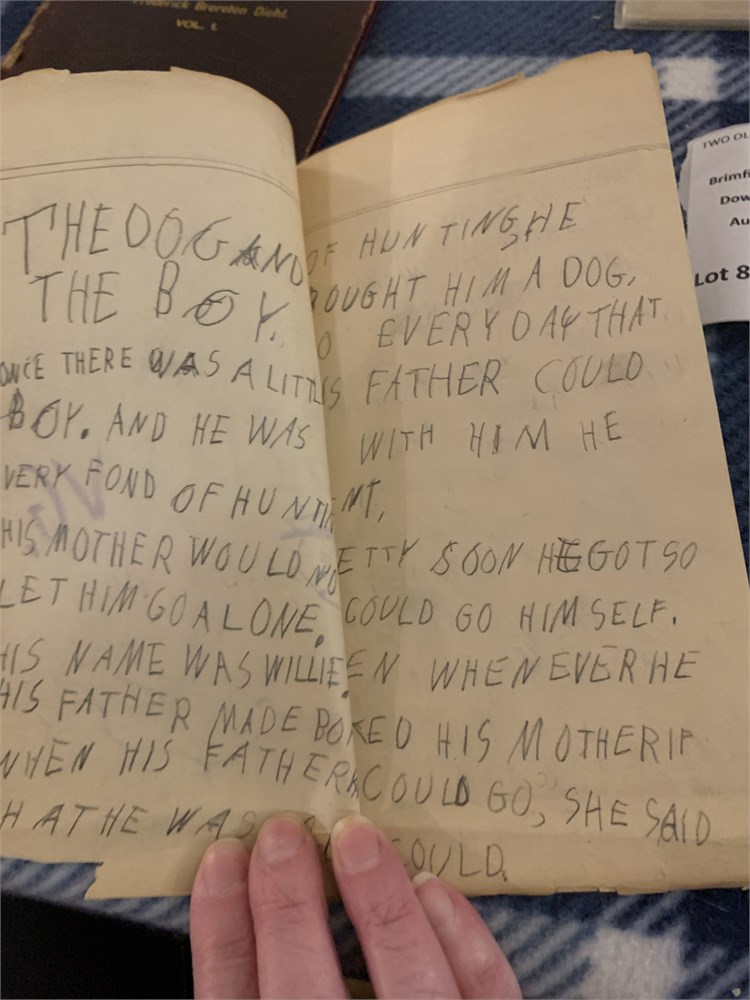 Frederick Brereton Diehl.
VOL. I.
THE DOG AND
THE BOY.
ONCE THERE WAS A LITTL
BOY. AND HE WAS
VERY FOND OF HUNTIN
HIS MOTHER WOULD NO
LET HIM GO ALONE.
HIS NAME WAS WILLIE
HIS FATHER MADE BO
WHEN HIS FATHER
HAT HE WAS
OF HUNTING, HE
BOUGHT HIM A DOG,
O EVERY DAY THAT
IS FATHER COULD
WITH HIM HE
NT,
ETTY SOON HE GOT SO
COULD GO HIMSELF.
EN WHENEVER HE
KED HIS MOTHER IF
COULD GO, SHE SAID
COULD.
TWO OL
Brimfi
Dow
Au
Lot 8